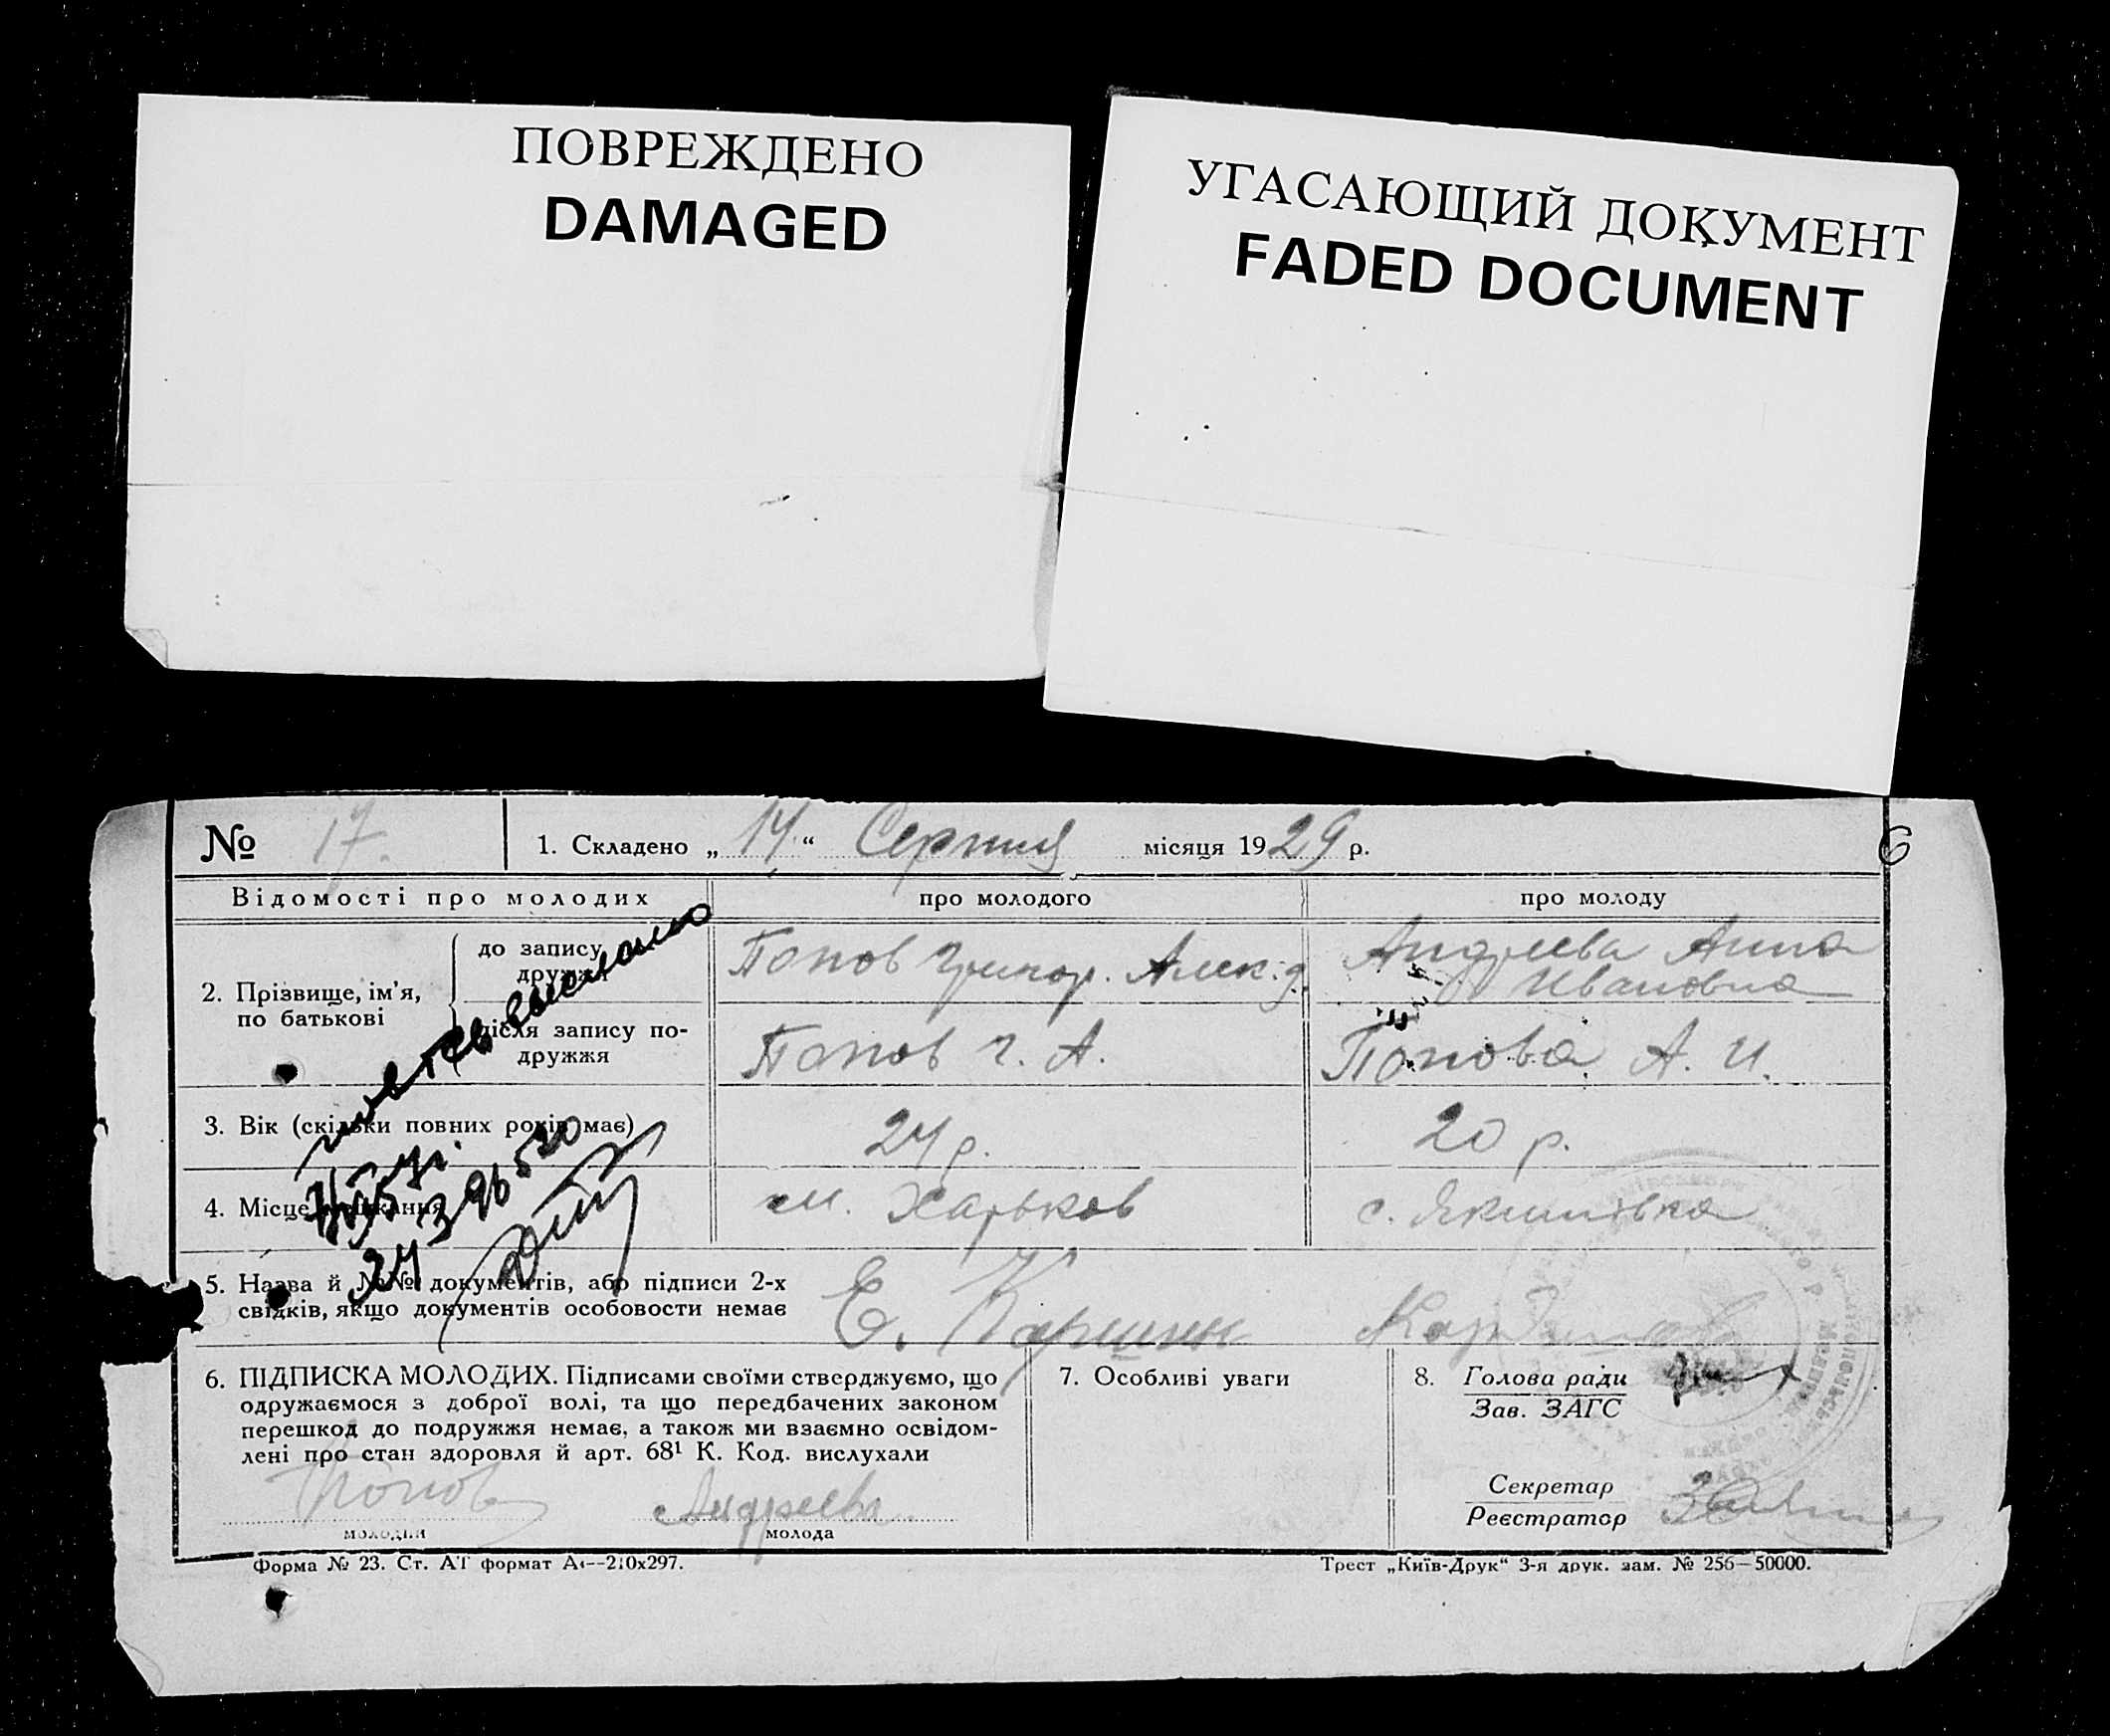 ПОВРЕЖДЕНО
DAMAGED
УГАСАЮЩИЙ ДОКУМЕНТ
FADED DOCUMENT
№ 17. 1. Складено „14“ Серпня місяця 1929 р.
6
Відомості про молодих про молодого про молоду
2. Прізвище, ім’я, по батькові
до запису дружжя
Попов Григор. Алек.д.
Андреева Анна
Ивановна
після запису по-
дружжя
Попов Г. А.
Попова А. И.
3. Вік (скільки повних років має) 24 р. 20 р.
4. Місце мешкання м. Харьков с. Якимівка
повторно выслано
5. Назва й №№ документів, або підписи 2-х
свідків, якщо документів особовости немає
Е.
6. ПІДПИСКА МОЛОДИХ. Підписами своїми стверджуємо, що
одружаємося з доброї волі, та що передбачених законом
перешкод до подружжя немає, а також ми взаємно освідом-
лені про стан здоровля й арт. 68¹ К. Код. вислухали
Попов Андреева
молодий молода
7. Особливі уваги
8. Голова ради
Зав. ЗАГС
Секретар
Реєстратор
Форма № 23. Ст. АТ формат А4—210х297.
Трест „Київ-Друк“ 3-я друк. зам. № 256—50000.